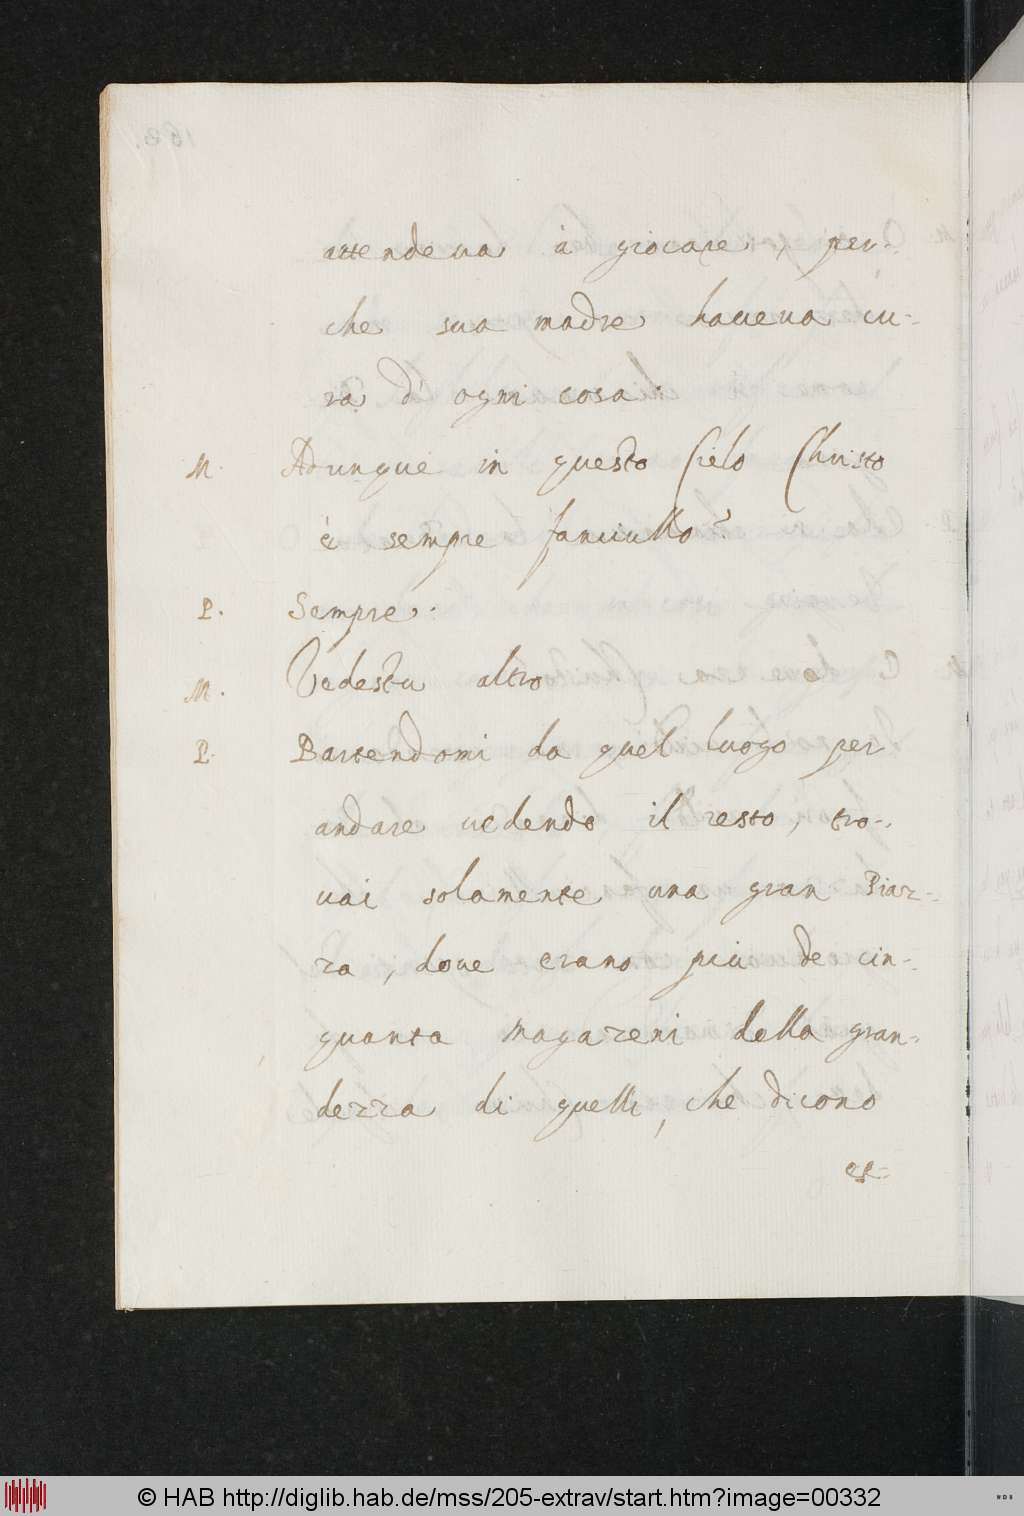 attendeva à giocare, per-
che sua madre haueua cu-
ra d'ogni cosa.
M. Adunque in questo Cielo Christo
è sempre fanciullo?
P. Sempre.
M. Vedestu altro
P. Partendomi da quel luogo per
andare uedendo il resto, tro-
uai solamente una gran Piaz-
za, doue erano più de cin-
quanta magazeni della gran-
dezza di quelli, che dicono
es-
© HAB http://diglib.hab.de/mss/205-extrav/start.htm?image=00332